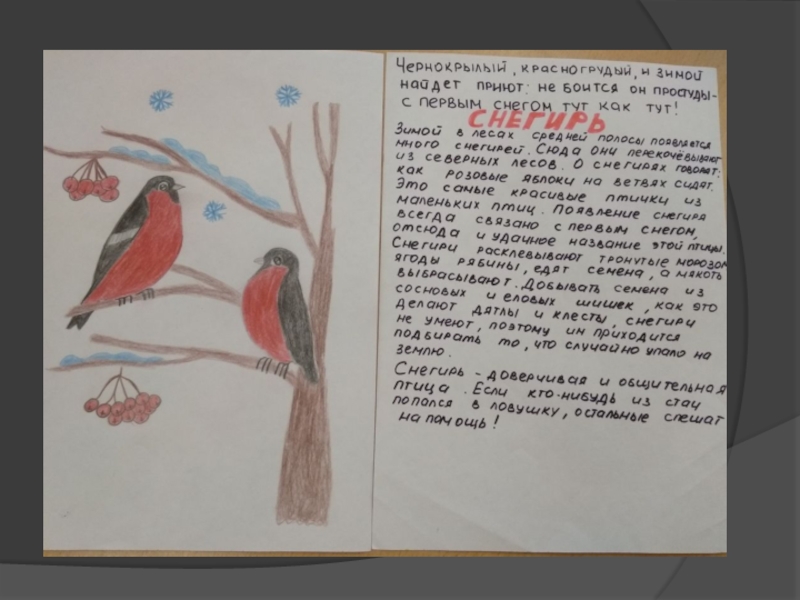 Чернокрылый, красногрудый, и зимой
найдет приют: не боится он простуды-
с первым снегом тут как тут!
СНЕГИРЬ
Зимой в лесах средней полосы появляется
много снегирей. Сюда они перекочёвывают
из северных лесов. О снегирях говорят:
как розовые яблоки на ветвях сидят.
Это самые красивые птички из
маленьких птиц. Появление снегиря
всегда связано с первым снегом,
отсюда и удачное название этой птицы.
Снегири расклевывают тронутые морозом
ягоды рябины, едят семена, а мякоть
выбрасывают. Добывать семена из
сосновых и еловых шишек, как это
делают дятлы и клесты, снегири
не умеют, поэтому им приходится
подбирать то, что случайно упало на
землю.
Снегирь - доверчивая и общительная
птица. Если кто-нибудь из стаи
попался в ловушку, остальные спешат
на помощь!